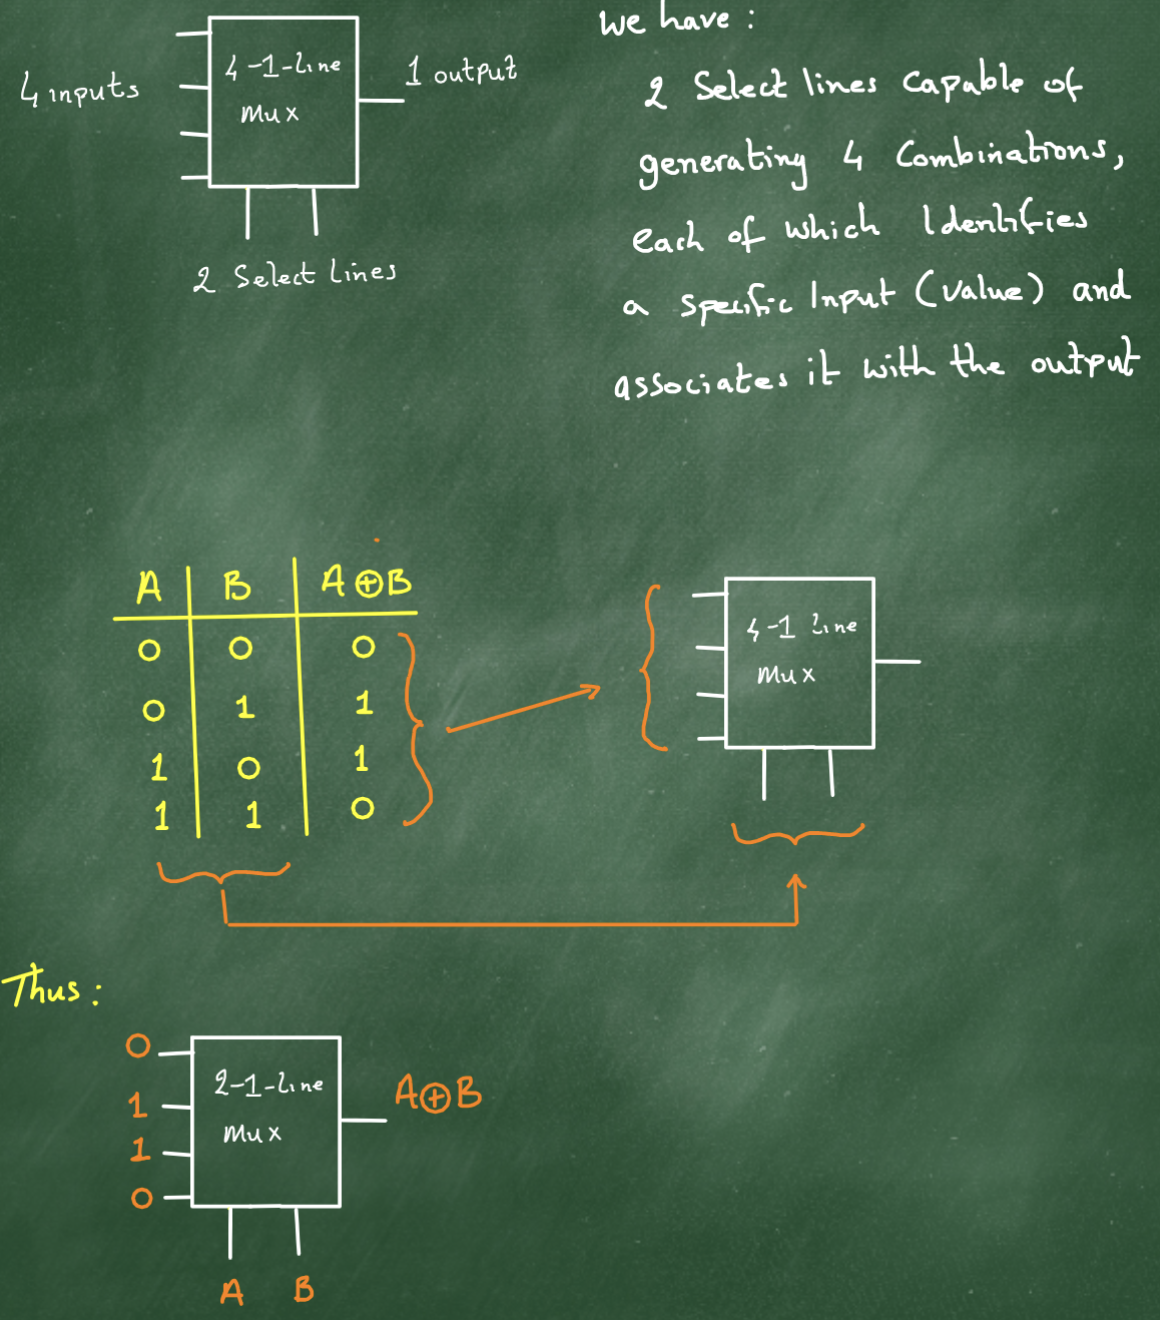 4-1-Line
Mux
4 inputs
1 output
2 Select Lines
we have :
2 Select lines capable of
generating 4 Combinations,
each of which Identifies
a specific Input (value) and
associates it with the output
A B A⊕B
0 0 0
0 1 1
1 0 1
1 1 0
4-1 Line
Mux
Thus :
0
1
1
0
2-1-Line
Mux
A⊕B
A B